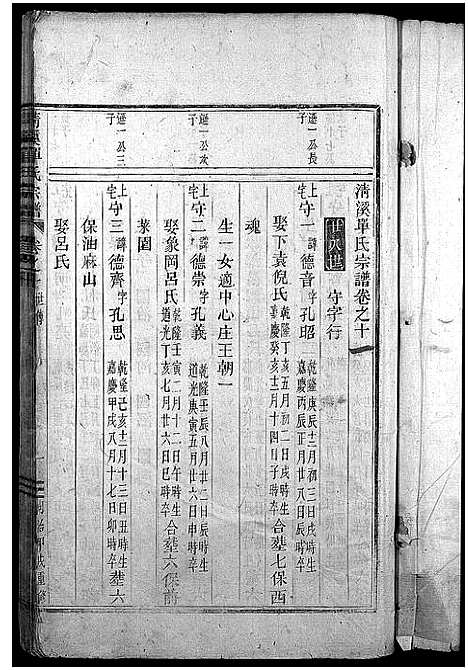 清溪單氏宗譜卷之十一
廿八世 守字行
遜一公長子
上宅 守一 諱德音 字孔昭 乾隆庚辰十二月初三日戌時生 嘉慶丙辰正月廿八日辰時卒
娶下袁倪氏 乾隆丁亥五月初二日戌時生 嘉慶癸亥十二月十四日子時卒 合塟七保西
魂
生一女適中心庄王朝一
遜一公次子
上宅 守二 諱德崇 字孔義 乾隆壬辰八月廿二日辰時生 道光庚寅五月廿六日申時卒
娶象岡呂氏 乾隆壬寅二月十二日午時生 道光丁亥七月廿六日巳時卒 合塟六保前
菉園
遜一公三子
上宅 守三 諱德齊 字孔思 乾隆己亥十二月十三日丑時生 嘉慶甲戌八月十七日卯時卒 塟六
保油麻山
娶呂氏
清溪單氏宗譜